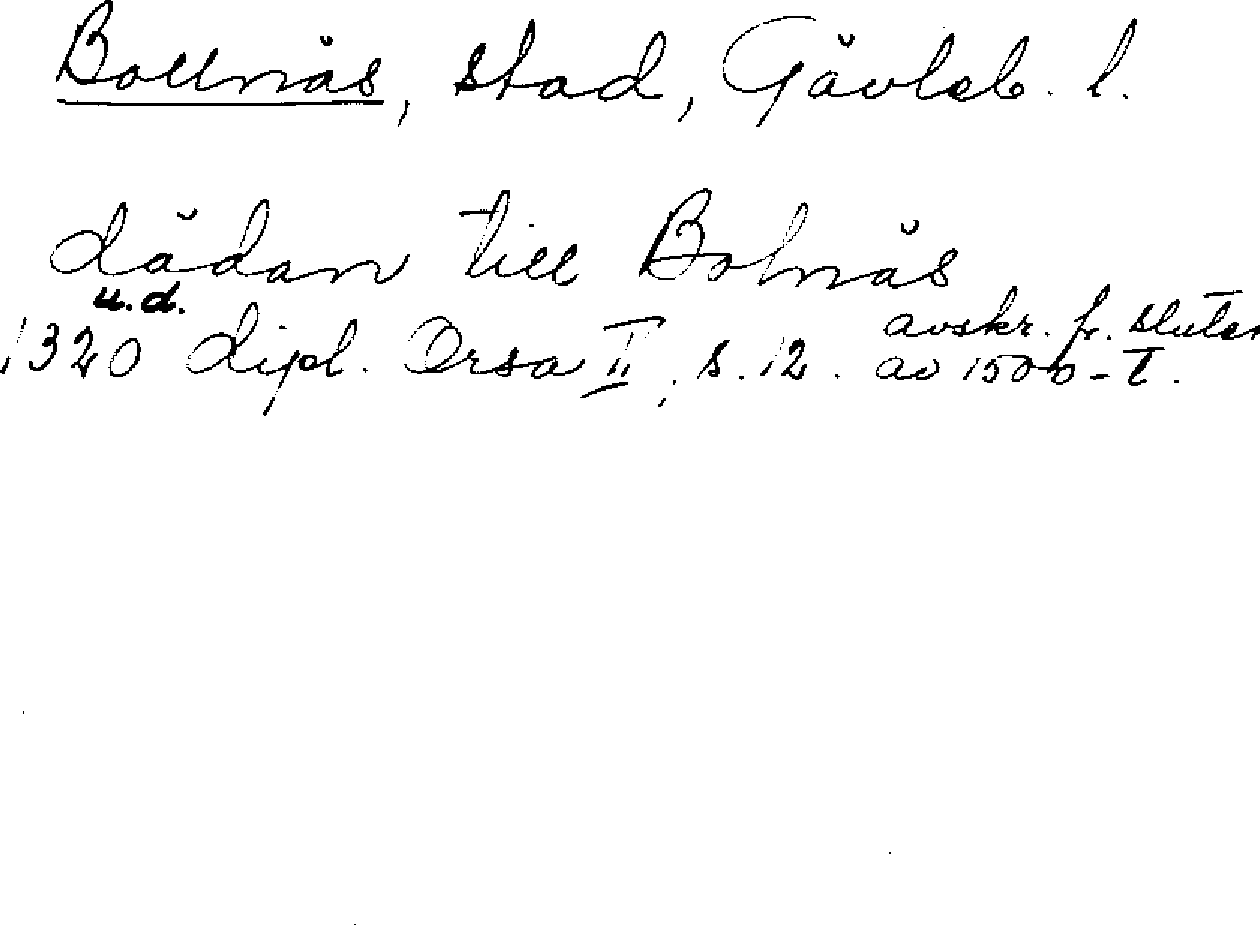 Bollnäs, stad, Gävleb. l.
dädan till Bolnäs
u.d.
1320 dipl. Orsa II, s. 12. avskr. fr. slutet
av 1500-t.